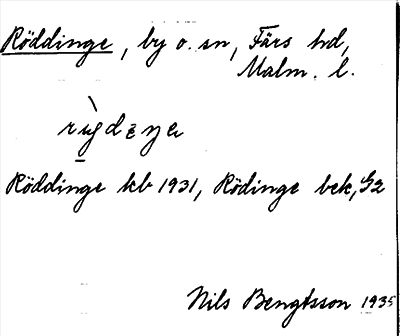 Röddinge, by o. sn, Färs hd,
Malm. l.
Röddinge kb 1931, Rödinge bek, G2
Nils Bengtsson 1935